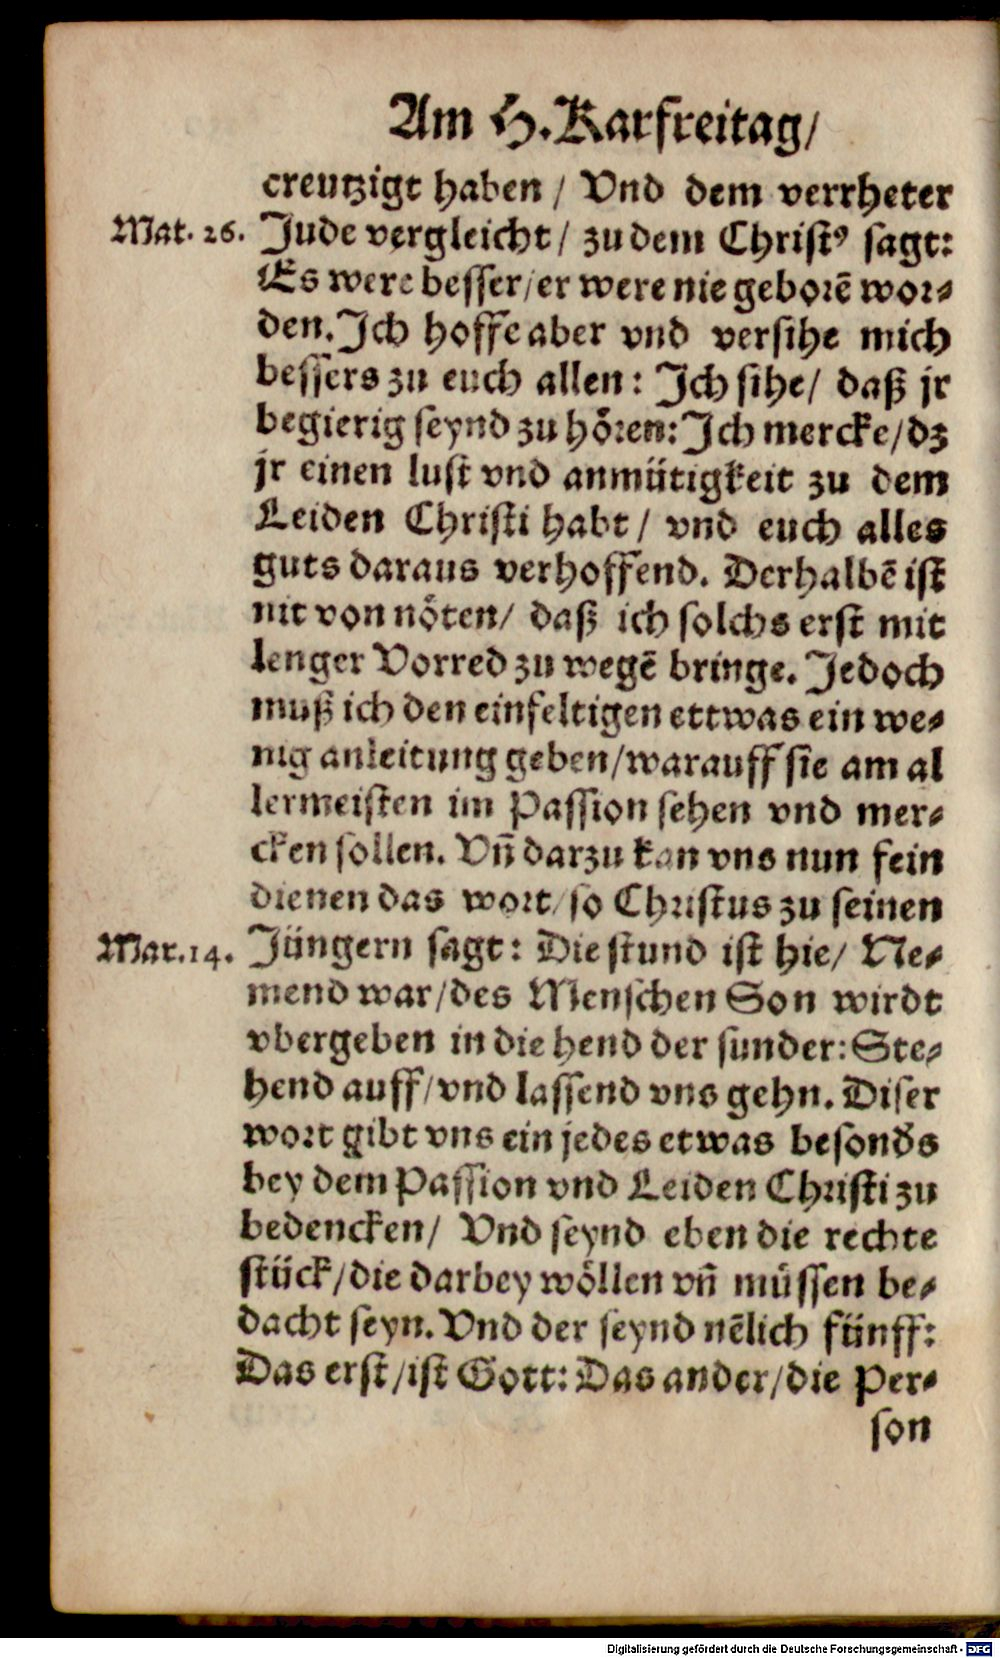 Am H. Karfreitag/
creutzigt haben / Vnd dem verrheter
Mat. 26. Jude vergleicht / zu dem Christꝰ sagt:
Es were besser/er were nie geborē wor⸗
den. Ich hoffe aber vnd versihe mich
bessers zu euch allen: Ich sihe/ daß jr
begierig seynd zu hören: Ich mercke/dz
jr einen lust vnd anmütigkeit zu dem
Leiden Christi habt / vnd euch alles
guts daraus verhoffend. Derhalbē ist
nit von nöten/ daß ich solchs erst mit
lenger Vorred zu wegē bringe. Jedoch
muß ich den einfeltigen ettwas ein we⸗
nig anleitung geben/warauff sie am al
lermeisten im Passion sehen vnd mer⸗
cken sollen. Vñ darzu kan vns nun fein
dienen das wort/so Christus zu seinen
Mar. 14. Jüngern sagt: Die stund ist hie/ Ne⸗
mend war/des Menschen Son wirdt
vbergeben in die hend der sunder: Ste⸗
hend auff/vnd lassend vns gehn. Diser
wort gibt vns ein jedes etwas besonđs
bey dem Passion vnd Leiden Christi zu
bedencken/ Vnd seynd eben die rechte
stück/die darbey wöllen vñ müssen be⸗
dacht seyn. Vnd der seynd nēlich fünff:
Das erst/ist Gott: Das ander/die Per⸗
son
Digitalisierung gefördert durch die Deutsche Forschungsgemeinschaft - DFG